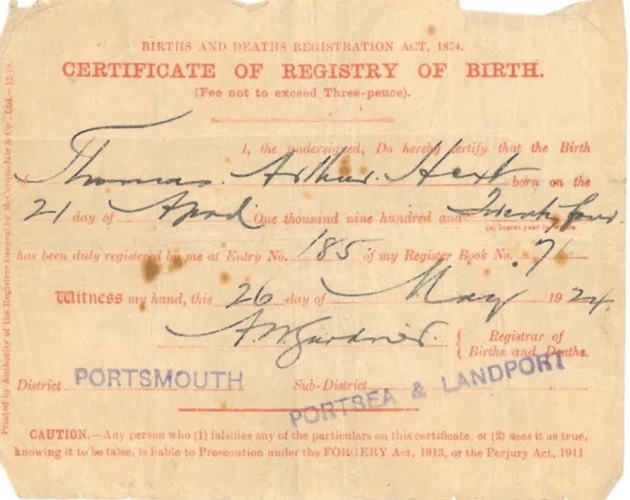 BIRTHS AND DEATHS REGISTRATION ACT, 1874.
CERTIFICATE OF REGISTRY OF BIRTH.
(Fee not to exceed Three-pence).
I, the undersigned, Do hereby certify that the Birth
of Thomas Arthur Hext born on the
21 day of April One thousand nine hundred and Twenty four
(a) Insert year in
has been duly registered by me at Entry No. 185 of my Register Book No. 71
Witness my hand, this 26 day of May 1924.
A. W. Gardner. { Registrar of
Births and Deaths.
District PORTSMOUTH Sub-District PORTSEA & LANDPORT
CAUTION.—Any person who (1) falsifies any of the particulars on this certificate, or (2) uses it as true,
knowing it to be false, is liable to Prosecution under the FORGERY Act, 1913, or the Perjury Act, 1911.
Printed by Authority of the Registrar General by McCorquodale & Co., Ltd.—